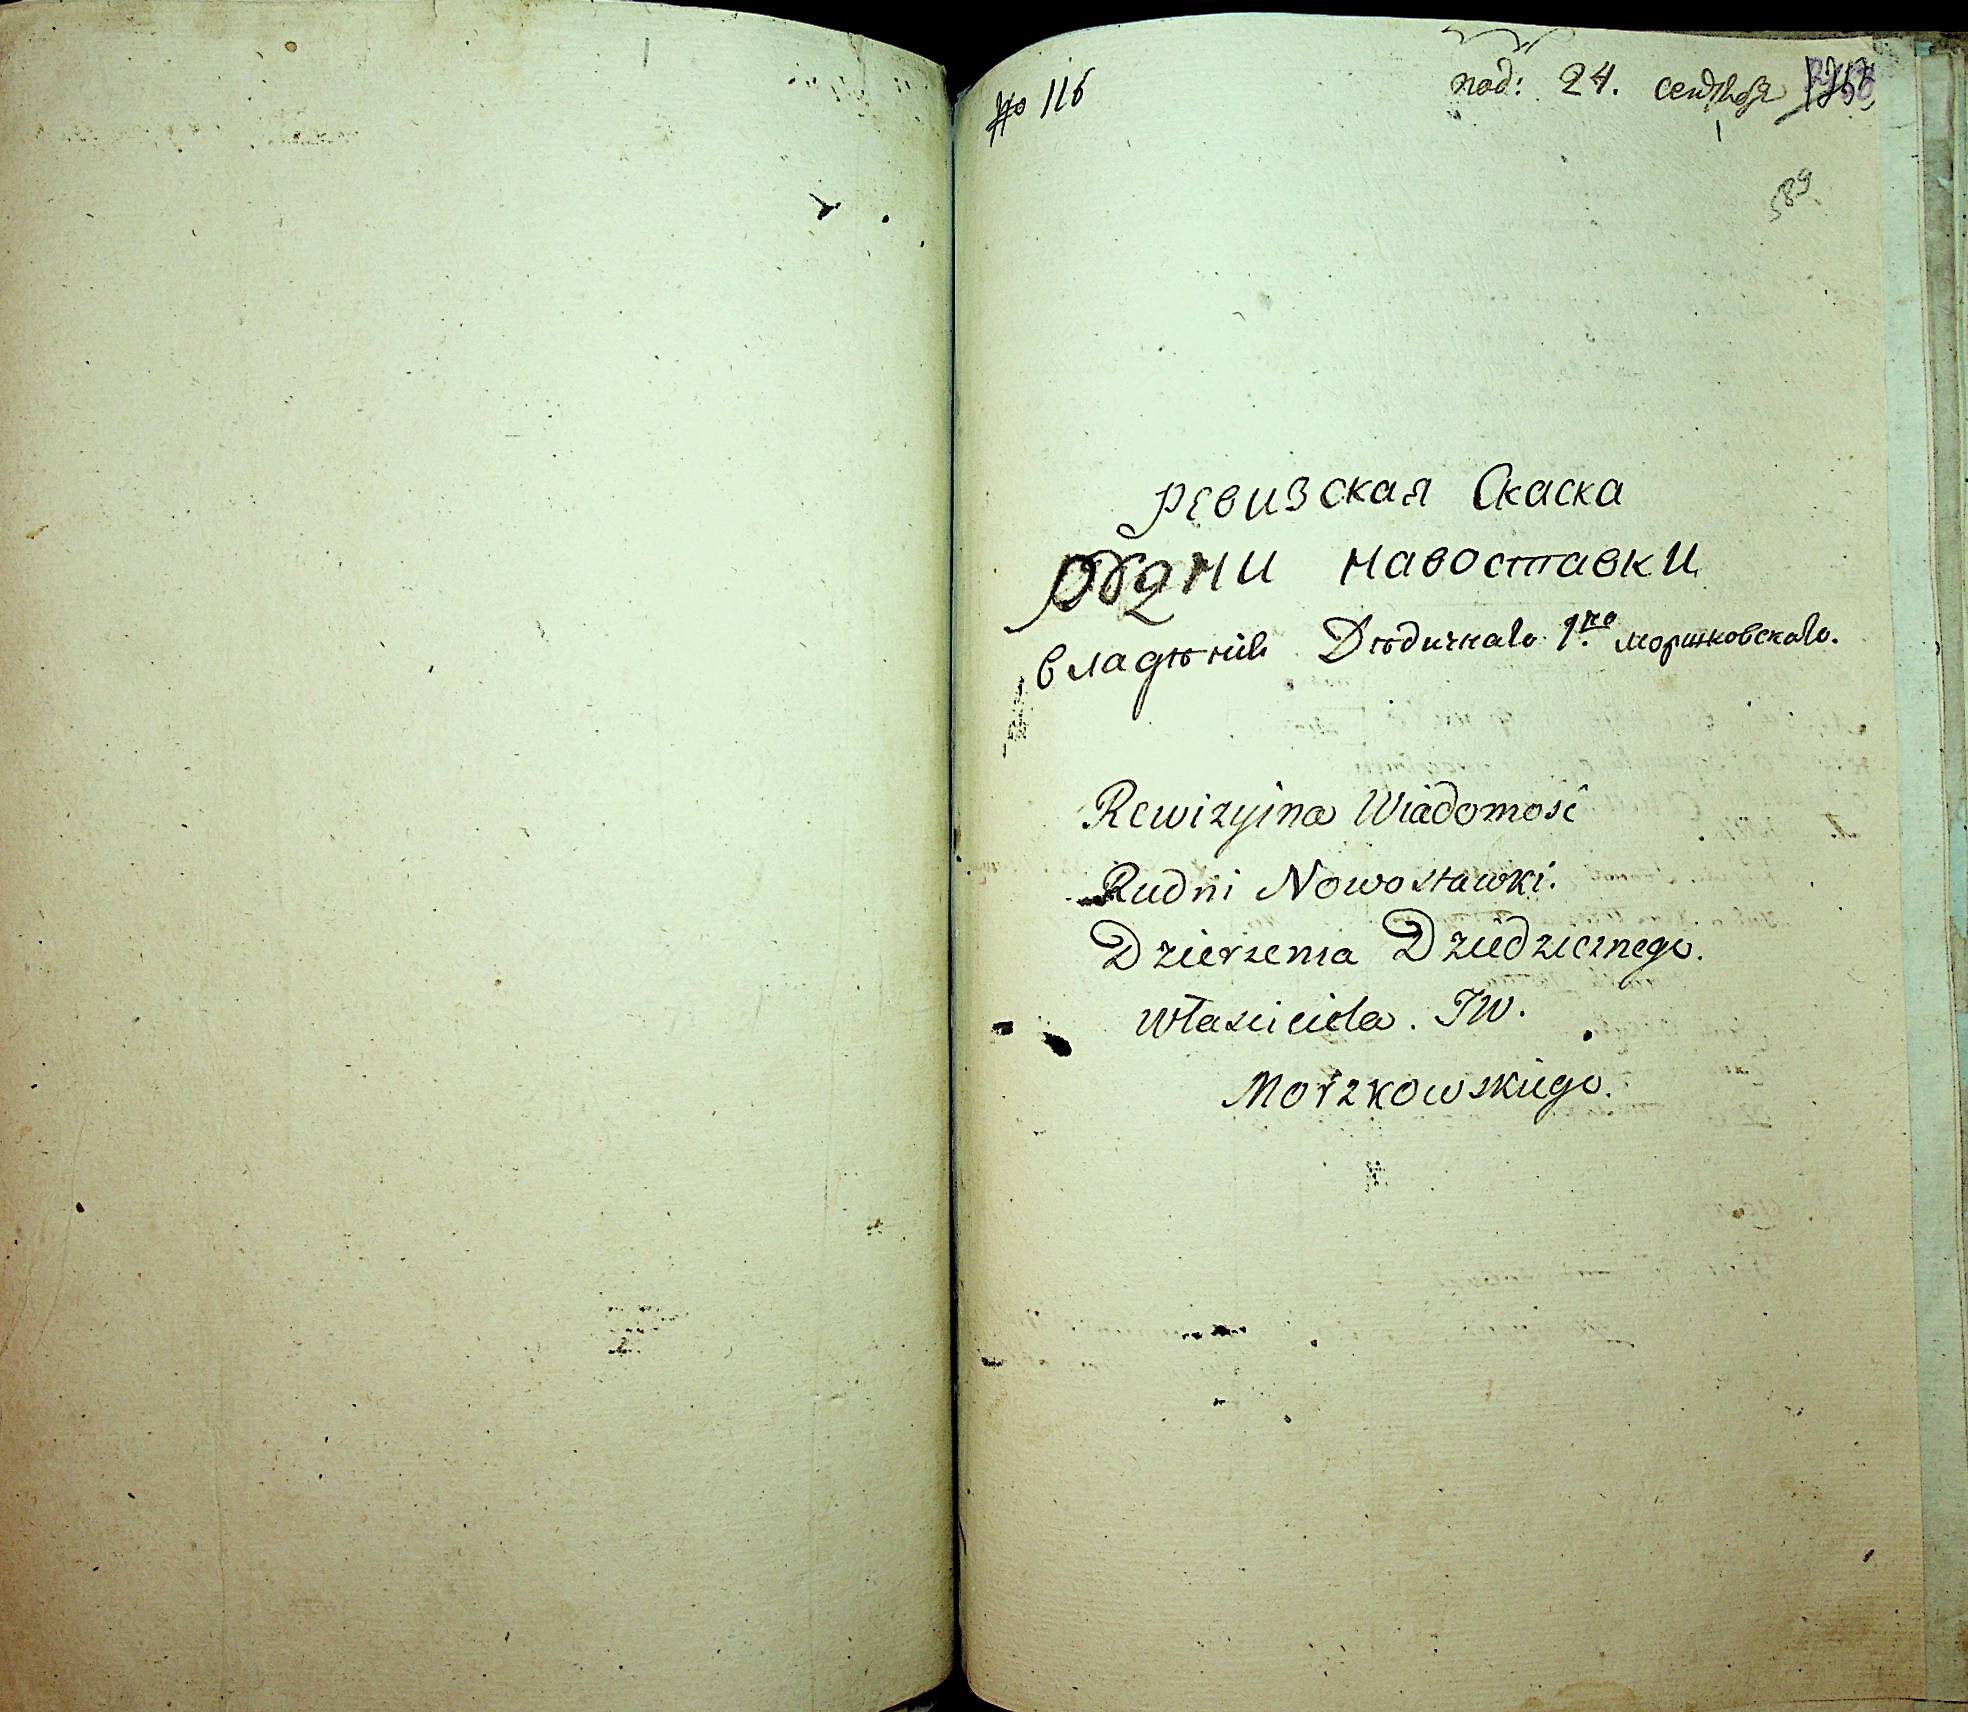 № 116
под: 24. сентября
589
Ревизская Скаска
Рудни Навоставки
владѣнiѣ Дѣдичнаго Гна Моржковскаго.
Rewizyina Wiadomość
Rudni Nowostawki.
Dzierzenia Dziedzicznego.
Własciciela. JW.
Morzkowskiego.